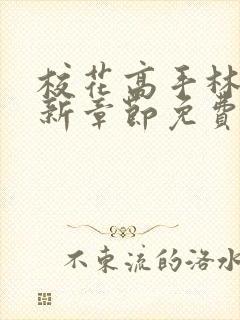 校花高手林
新章節免費
不東流的洛水